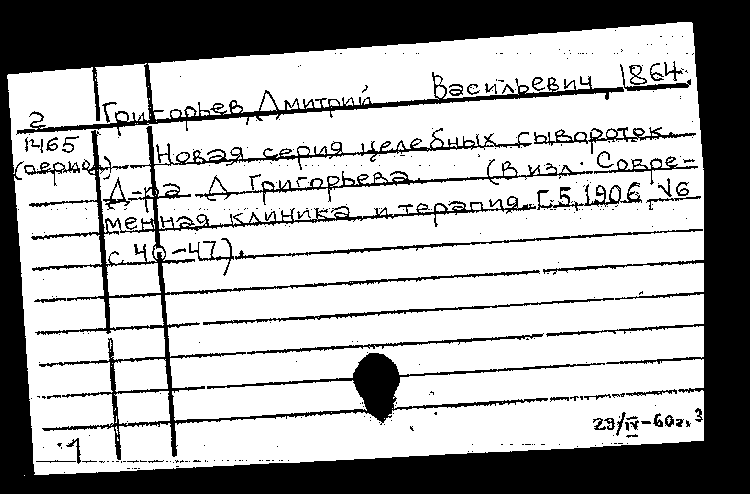 Григорьев, Дмитрий Васильевич, 1864.
2
1465
(период)
Новая серия целебных сывороток.
Д-ра Д Григорьева. (В изд. Совре-
менная клиника и терапия Г.5, 1906, №6
с. 46-47).
1
29/IV-60г.